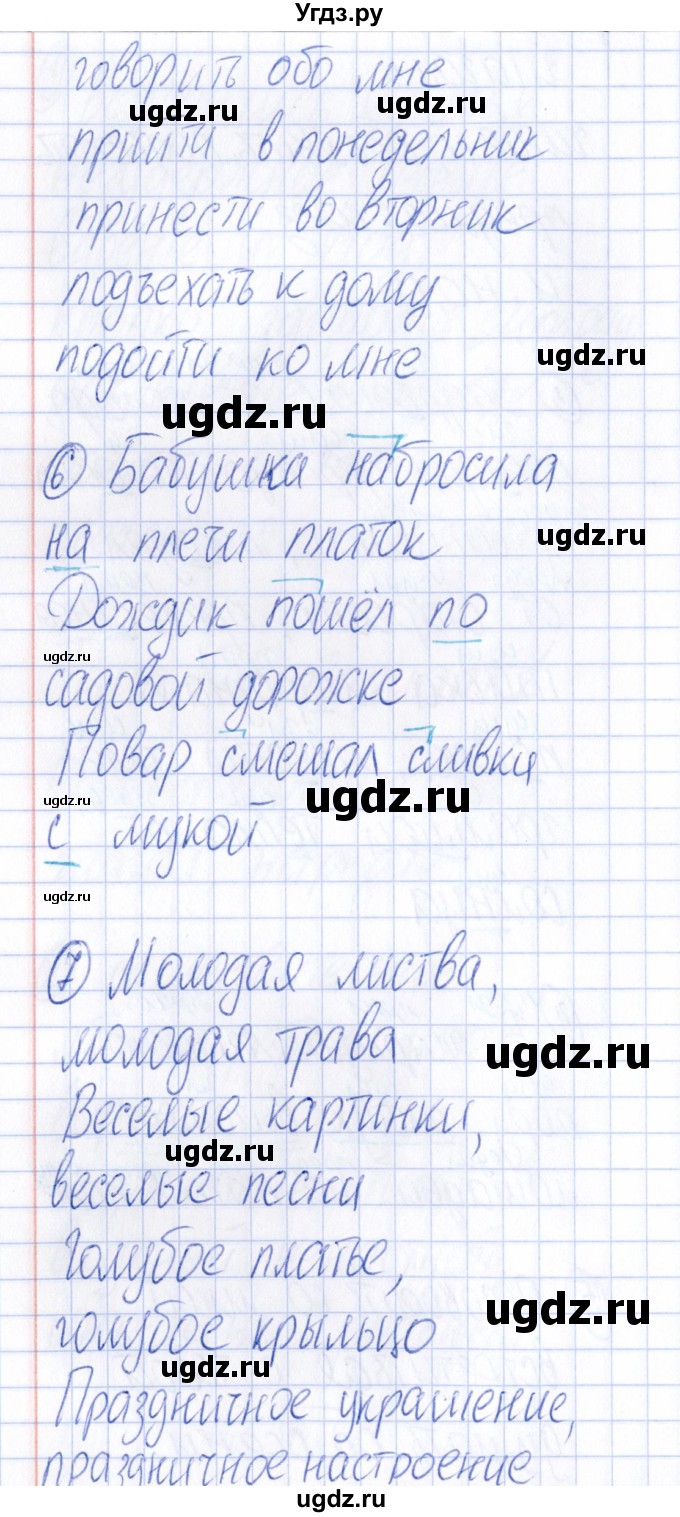 Угдз.ру
говорить обо мне
ugdz.ru ugdz.ru
прийти в понедельник
принести во вторник
подъехать к дому
подойти ко мне
ugdz.ru
ugdz.ru
6 Бабушка набросила
на плечи платок
ugdz.ru
Дождик пошёл по
ugdz.ru
садовой дорожке
Повар смешал сливки
ugdz.ru
ugdz.ru
с мукой
ugdz.ru
7 Молодая листва,
молодая трава
ugdz.ru
Веселые картинки,
ugdz.ru
веселые песни
Голубое платье,
ugdz.ru
голубое крыльцо
ugdz.ru
Праздничное украшение,
праздничное настроение
ugdz.ru